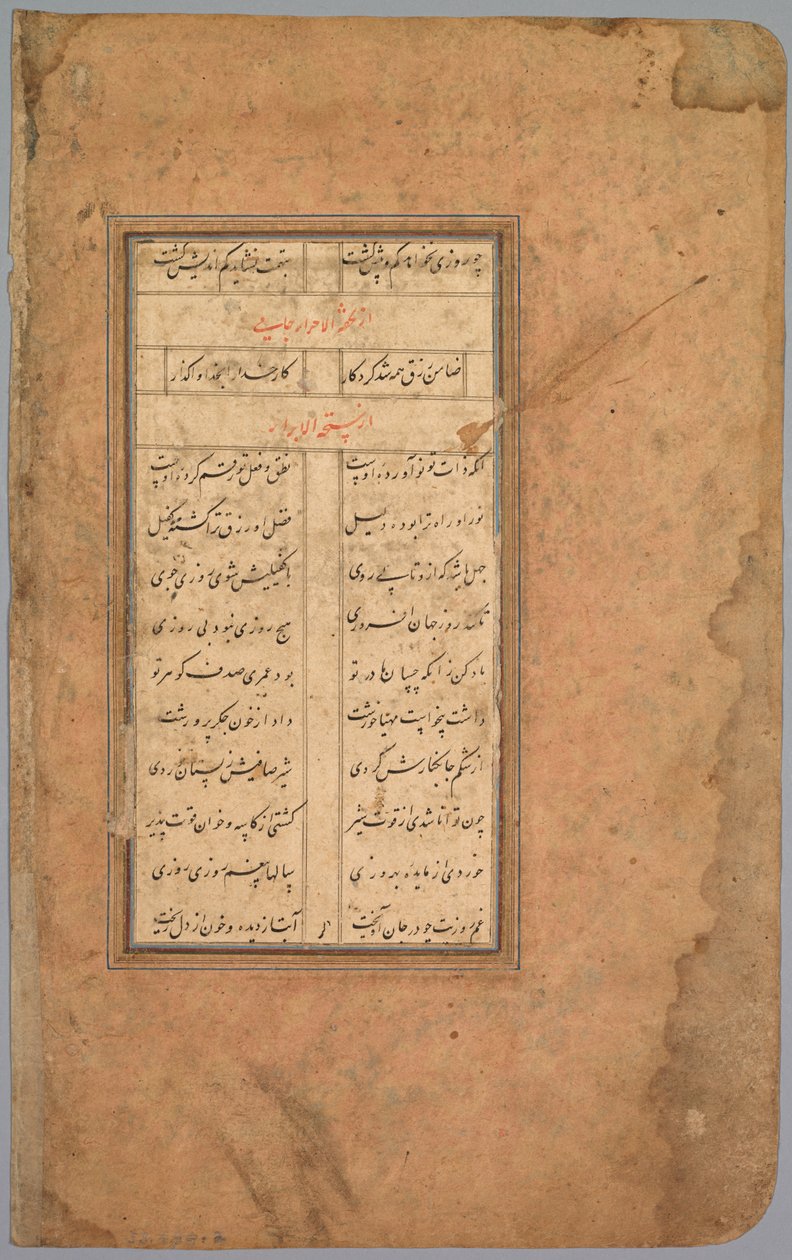 چو روزی نخواهد کم و بیش کشت نشاید کم اندیش کشت
از تحفة الاحرار جامی
ضامن رزق همه شد کردکار کار خدا را بخدا واکذار
از سبحة الابرار
آنکه ذات تو نو آورده اوست نطق و فعل تو رقم کرده اوست
نور او راه ترا بوده دلیل فضل او رزق ترا کشته کفیل
جهل باشد که ازو تابی روی با کفیلیش شوی روزی جوی
تا کند روز جهان افروزی هیچ روزی نبود بی روزی
یاد کن زانکه چسان مادر تو بود عمری صدف کوهر تو
داشت بیخواست مهیا خورشت داد از خون جکر پرورشت
از شکم جا بکنارش کردی شیر صافیش ز پستان خوردی
چون توانا شدی از قوت شیر کشتی از کاسه و خوان قوت پذیر
خوردی از مایده بهروزی سالها بیغم روزی روزی
غم روزیت چو در جان آویخت آبت از دیده و خون از دل ریخت